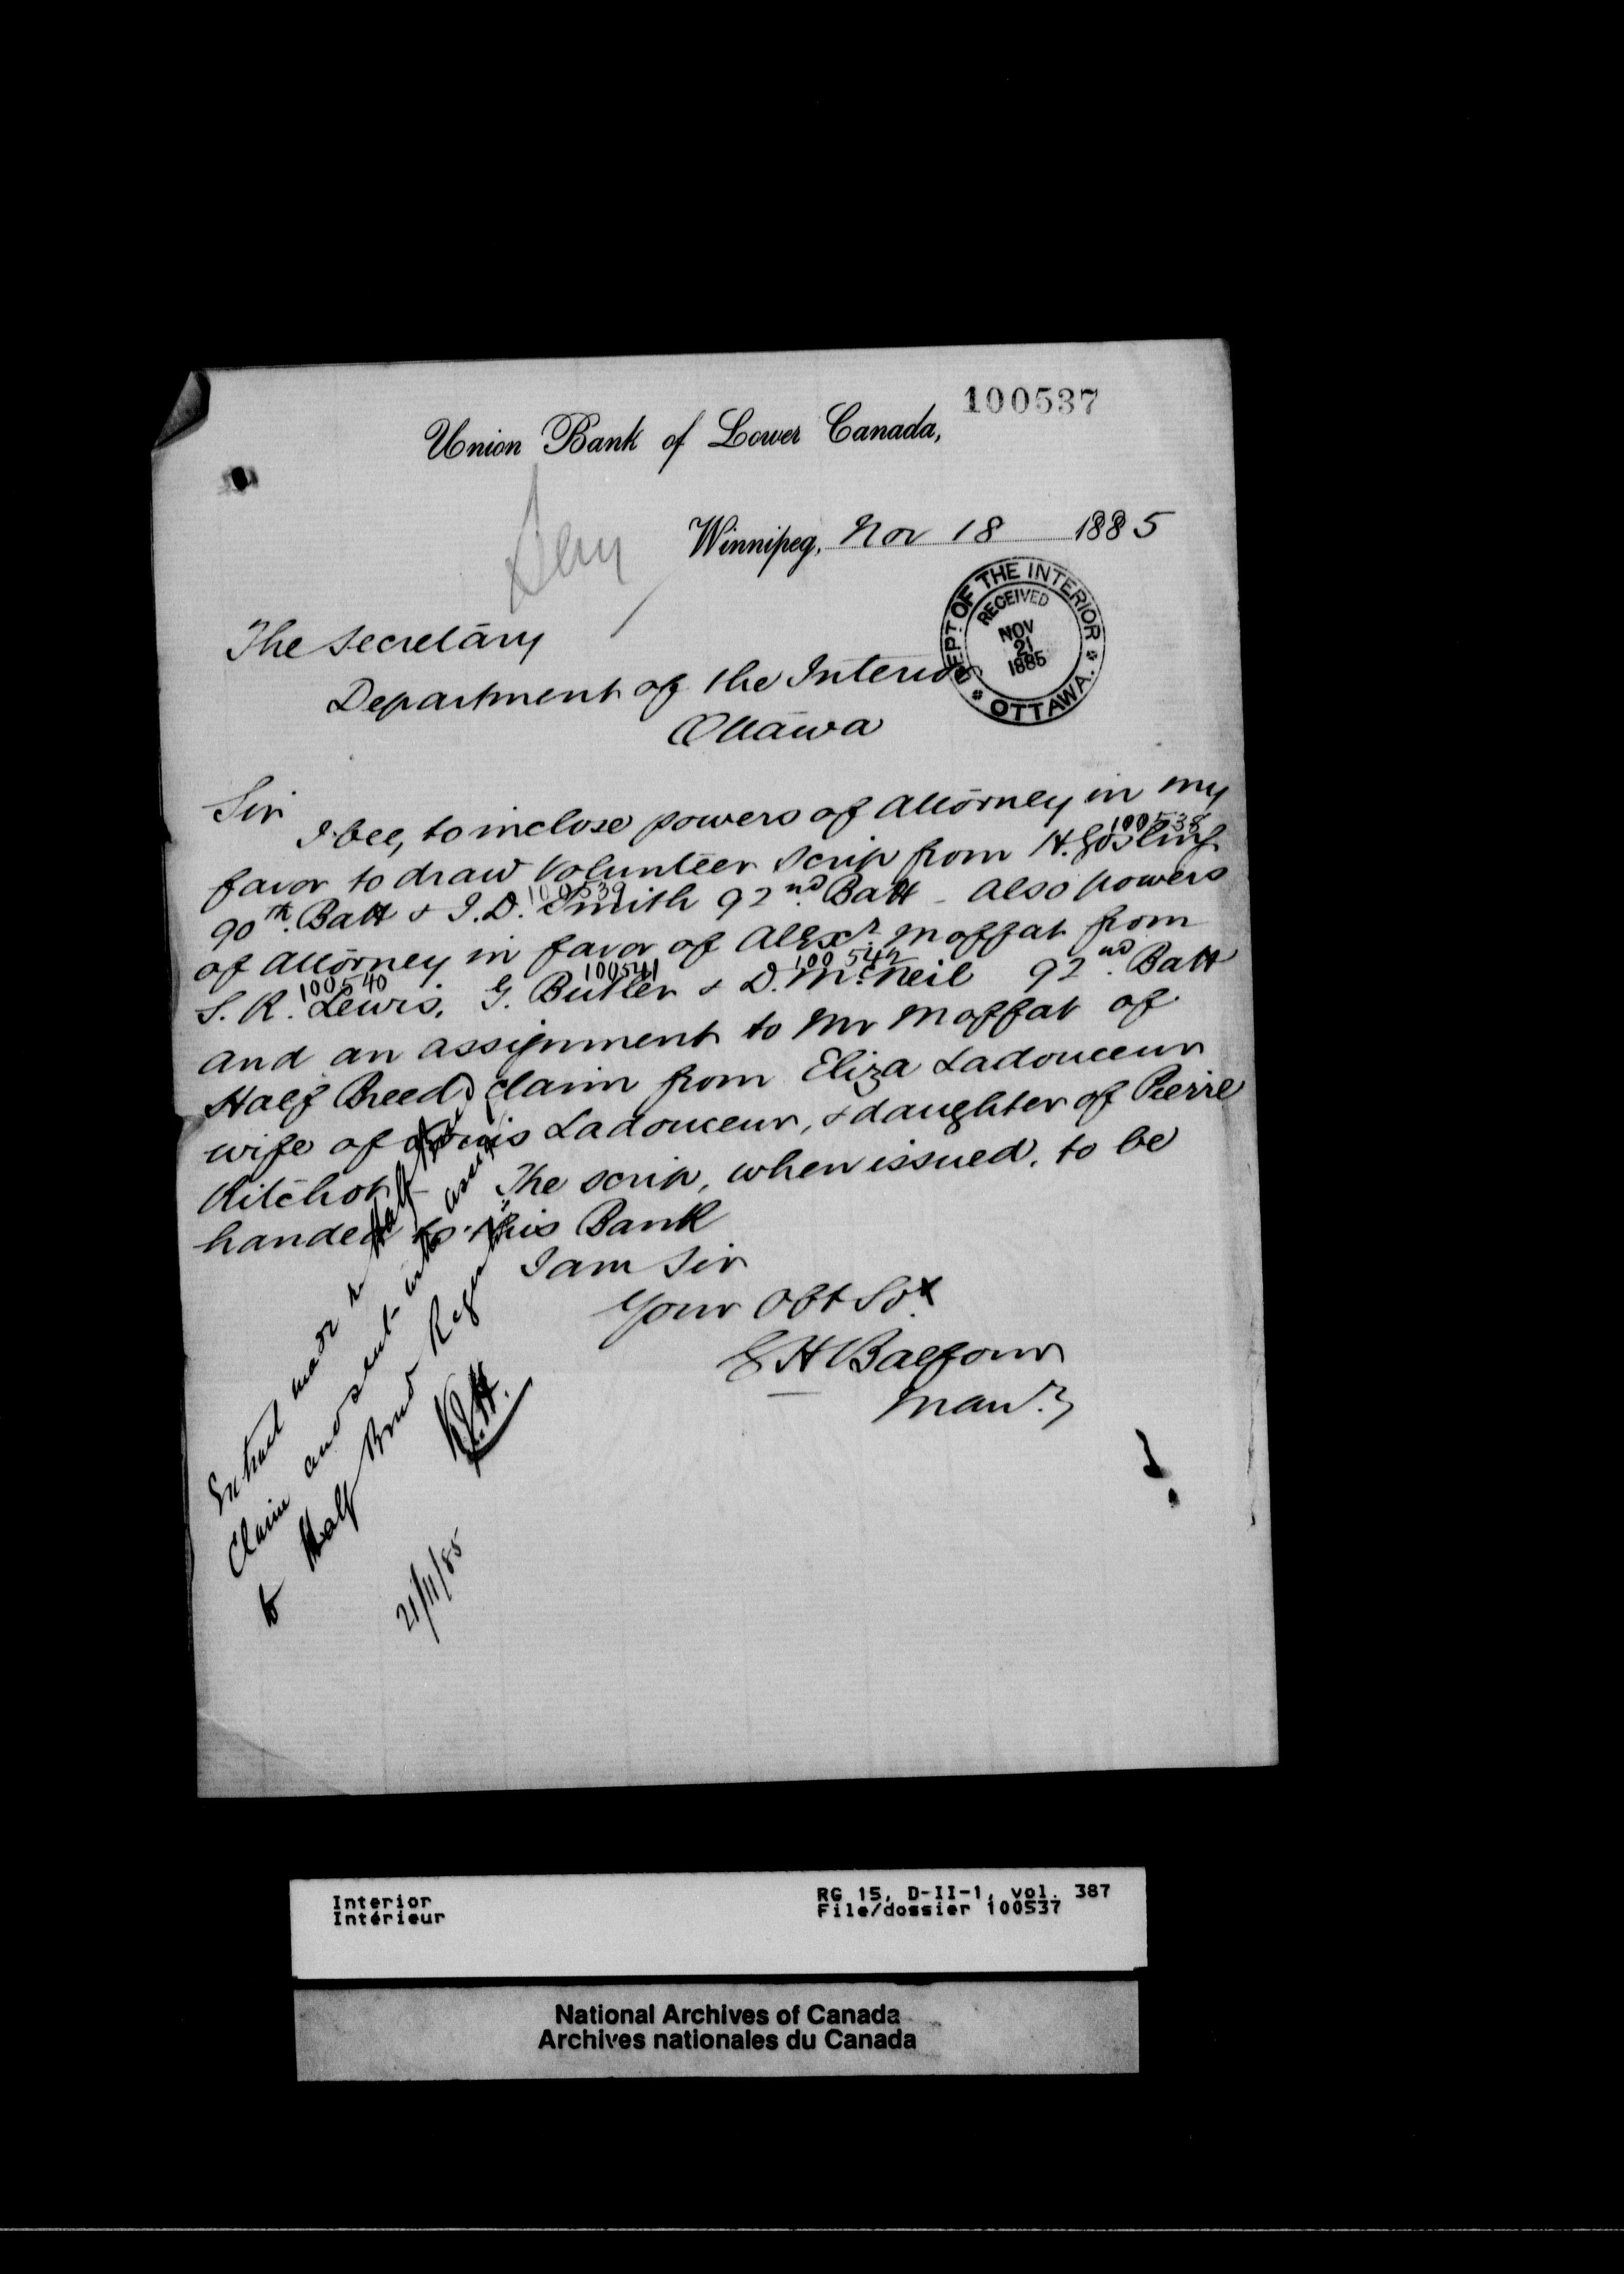 100537
Union Bank of Lower Canada,
Winnipeg, Nov 18 1885
DEPT. OF THE INTERIOR
RECEIVED
NOV
21
1885
* OTTAWA. *
The Secretary
Department of the Interior
Ottawa
Sir
I beg to inclose powers of Attorney in my
100538
favor to draw Volunteer Scrip from H. Gosling
100539
90th. Batt & J. D. Smith 92nd. Batt - also powers
of Attorney in favor of Alexr. Moffat from
100540 100541 100542
S. R. Lewis, G. Butler & D. McNeil 92nd. Batt
and an assignment to Mr Moffat of
Half Breed claim from Eliza Ladouceur
wife of Louis Ladouceur, & daughter of Pierre
The scrip, when issued, to be
handed to this Bank
I am Sir
Your Obt Svt
Balfour
Manr.
Extract made re Half Breed
Claim and sent with
to Half Breed
21/11/85
Interior
Intérieur
RG 15, D-II-1, vol. 387
File/dossier 100537
National Archives of Canada
Archives nationales du Canada